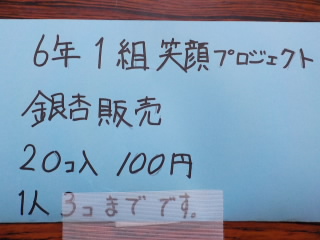 6年1組笑顔プロジェクト
銀杏販売
20コ入 100円
1人3コまでです。